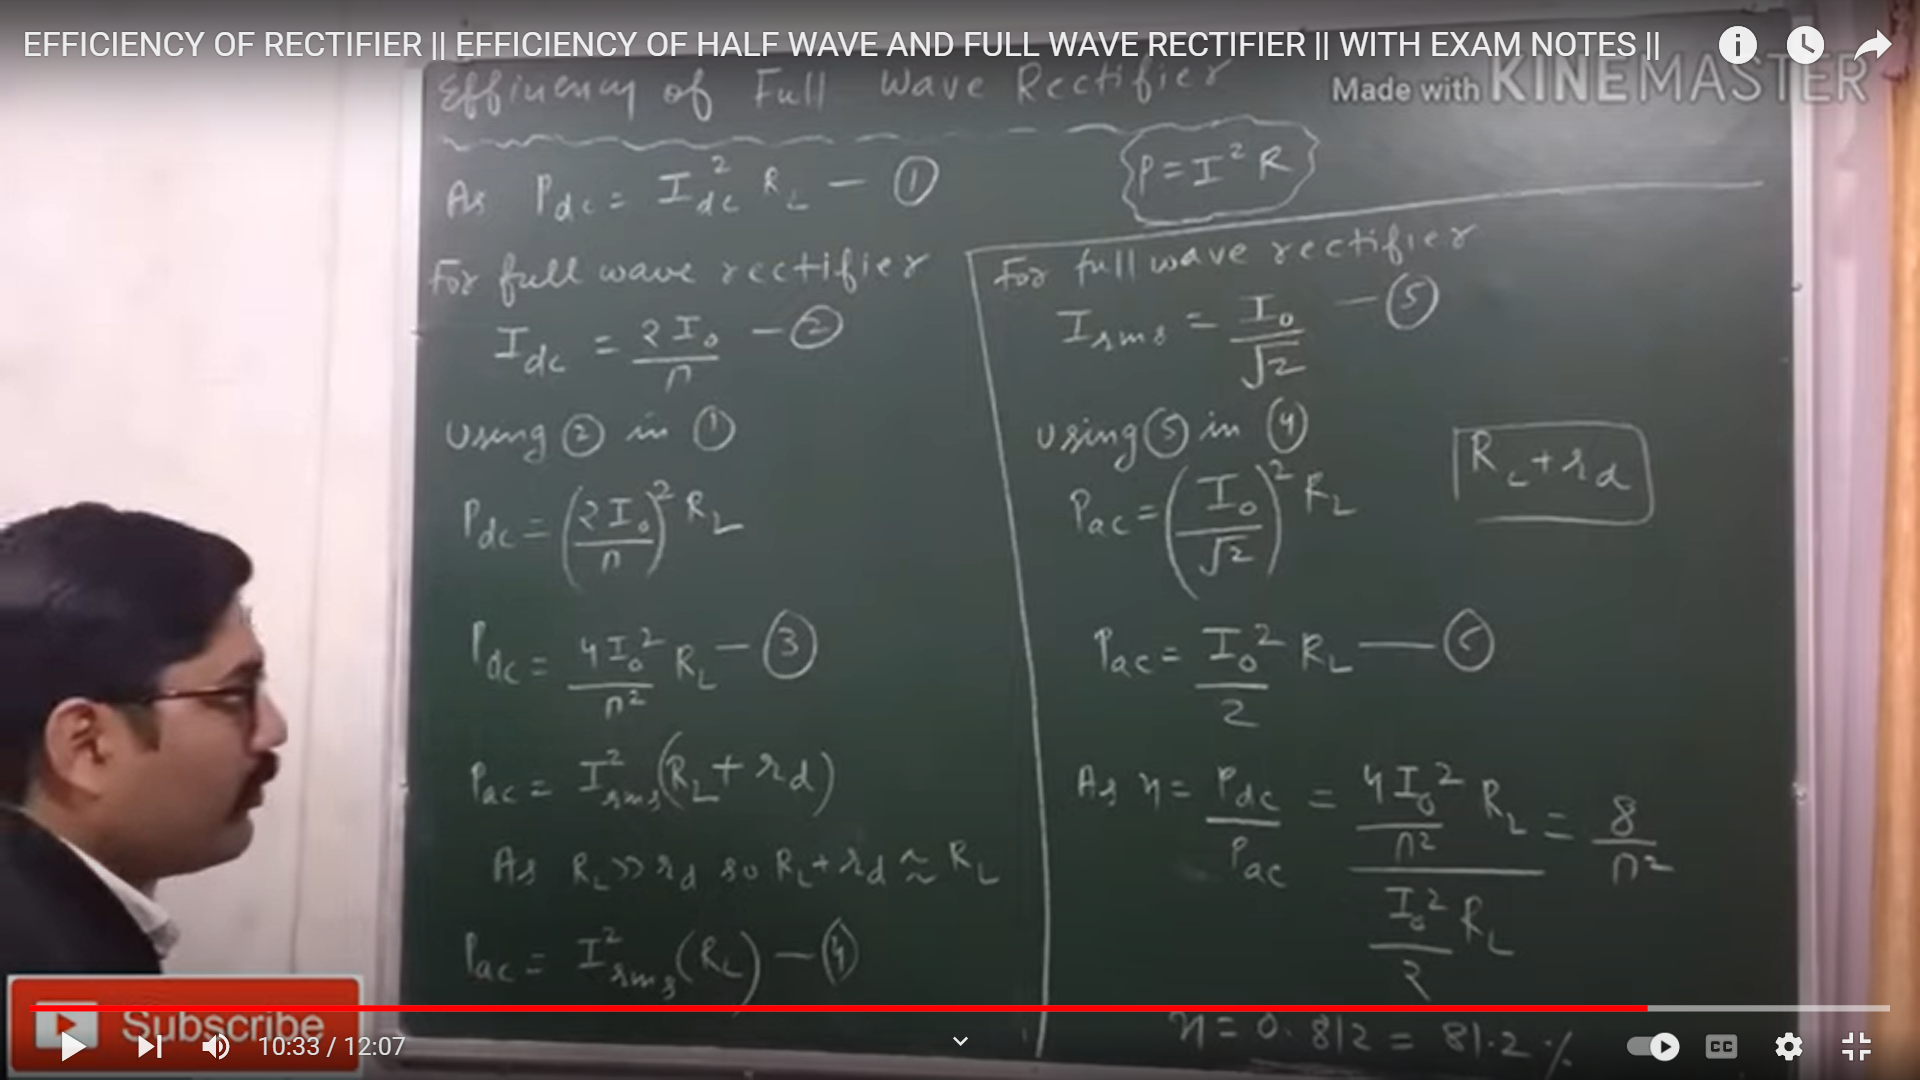 EFFICIENCY OF RECTIFIER || EFFICIENCY OF HALF WAVE AND FULL WAVE RECTIFIER || WITH EXAM NOTES ||
Made with KINEMASTER
Efficiency of Full Wave Rectifier
P = I² R
As P_dc = I_dc² R_L — ①
For full wave rectifier
I_dc = 2I₀/π — ②
Using ② in ①
P_dc = (2I₀/π)² R_L
P_dc = 4I₀²/π² R_L — ③
P_ac = I²_rms (R_L + r_d)
As R_L >> r_d so R_L + r_d ≈ R_L
P_ac = I²_rms (R_L) — ④
For full wave rectifier
I_rms = I₀/√2 — ⑤
Using ⑤ in ④
R_L + r_d
P_ac = (I₀/√2)² R_L
P_ac = I₀²/2 R_L — ⑥
As η = P_dc/P_ac = (4I₀²/π² R_L)/(I₀²/2 R_L) = 8/π²
η = 0.812 = 81.2 %
Subscribe
10:33 / 12:07
CC